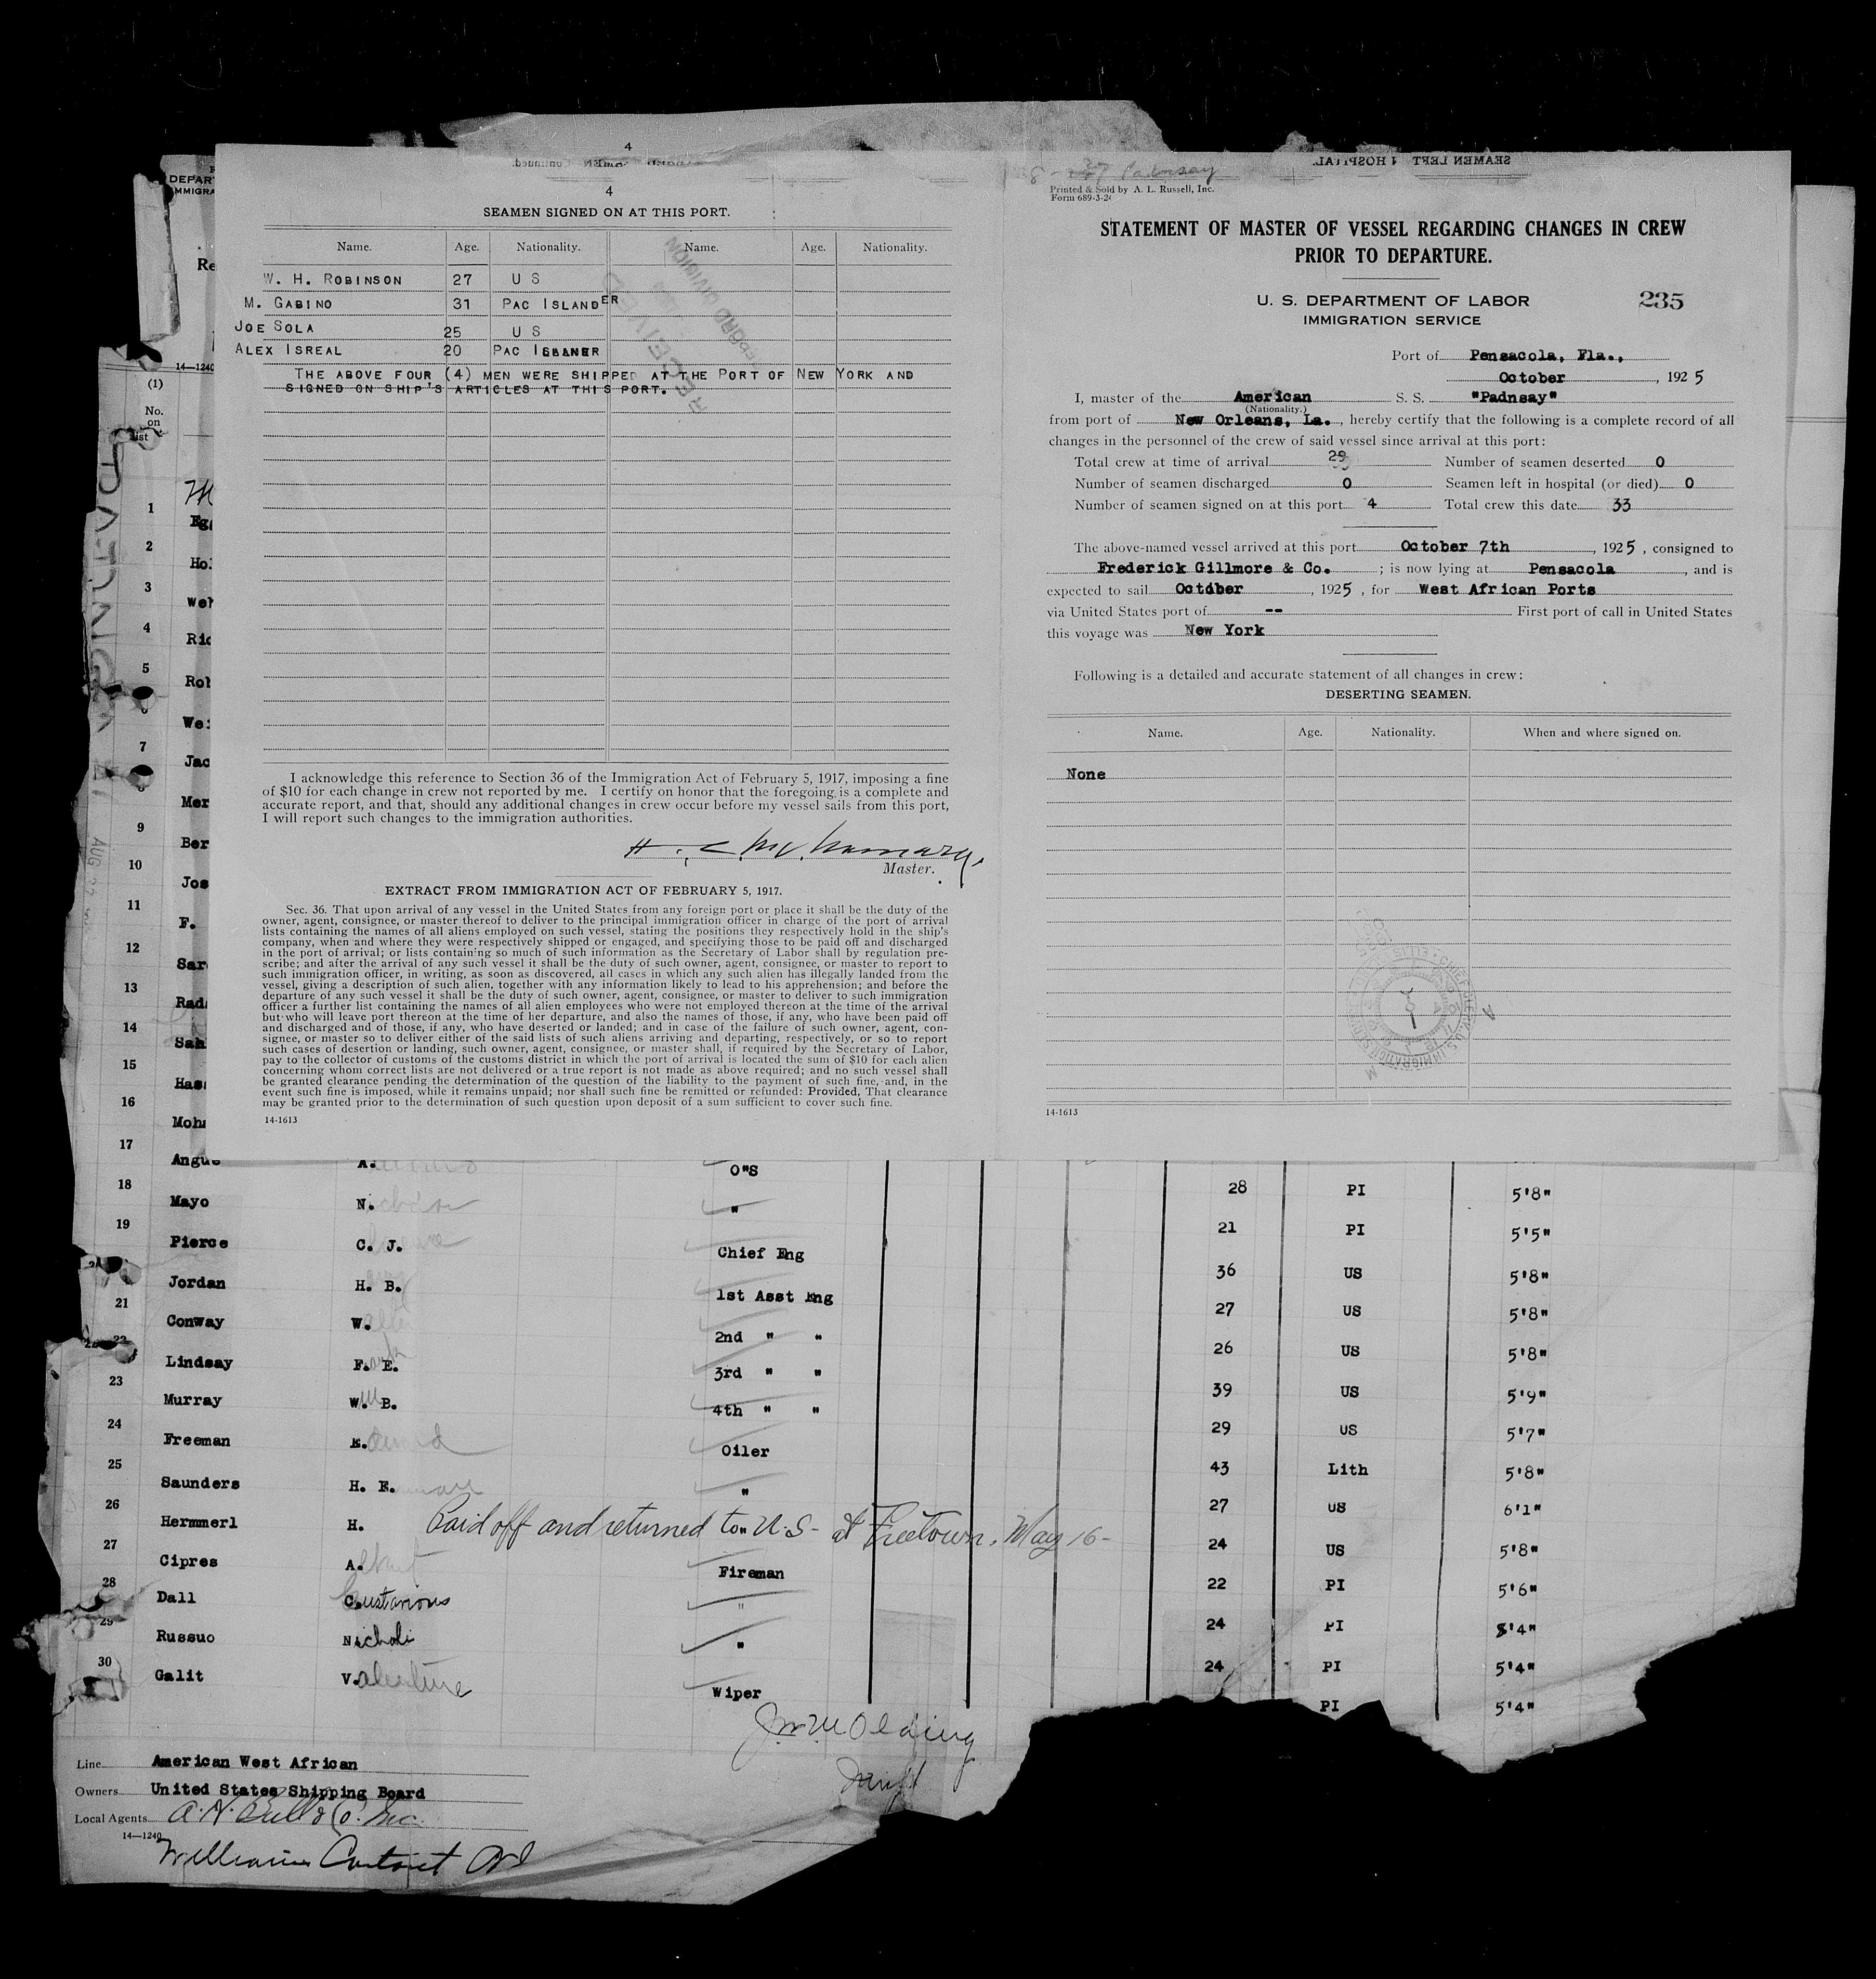 4
4
SEAMEN SIGNED ON AT THIS PORT.
Name. Age. Nationality. Name. Age. Nationality.
W. H. ROBINSON 27 U S
M. GABINO 31 PAC ISLANDER
JOE SOLA 25 U S
ALEX ISREAL 20 PAC
THE ABOVE FOUR (4) MEN WERE SHIPPED AT THE PORT OF NEW YORK AND
SIGNED ON SHIP'S ARTICLES AT THIS PORT.
RECEIVED
I acknowledge this reference to Section 36 of the Immigration Act of February 5, 1917, imposing a fine
of $10 for each change in crew not reported by me. I certify on honor that the foregoing is a complete and
accurate report, and that, should any additional changes in crew occur before my vessel sails from this port,
I will report such changes to the immigration authorities.
Master.
EXTRACT FROM IMMIGRATION ACT OF FEBRUARY 5, 1917.
Sec. 36. That upon arrival of any vessel in the United States from any foreign port or place it shall be the duty of the
owner, agent, consignee, or master thereof to deliver to the principal immigration officer in charge of the port of arrival
lists containing the names of all aliens employed on such vessel, stating the positions they respectively hold in the ship's
company, when and where they were respectively shipped or engaged, and specifying those to be paid off and discharged
in the port of arrival; or lists containing so much of such information as the Secretary of Labor shall by regulation pre-
scribe; and after the arrival of any such vessel it shall be the duty of such owner, agent, consignee, or master to report to
such immigration officer, in writing, as soon as discovered, all cases in which any such alien has illegally landed from the
vessel, giving a description of such alien, together with any information likely to lead to his apprehension; and before the
departure of any such vessel it shall be the duty of such owner, agent, consignee, or master to deliver to such immigration
officer a further list containing the names of all alien employees who were not employed thereon at the time of the arrival
but who will leave port thereon at the time of her departure, and also the names of those, if any, who have been paid off
and discharged and of those, if any, who have deserted or landed; and in case of the failure of such owner, agent, con-
signee, or master so to deliver either of the said lists of such aliens arriving and departing, respectively, or so to report
such cases of desertion or landing, such owner, agent, consignee, or master shall, if required by the Secretary of Labor,
pay to the collector of customs of the customs district in which the port of arrival is located the sum of $10 for each alien
concerning whom correct lists are not delivered or a true report is not made as above required; and no such vessel shall
be granted clearance pending the determination of the question of the liability to the payment of such fine, and, in the
event such fine is imposed, while it remains unpaid; nor shall such fine be remitted or refunded: Provided, That clearance
may be granted prior to the determination of such question upon deposit of a sum sufficient to cover such fine.
14-1613
SEAMEN LEFT HOSPITAL.
Padnsay
Printed & Sold by A. L. Russell, Inc.
Form 689-3-24
STATEMENT OF MASTER OF VESSEL REGARDING CHANGES IN CREW
PRIOR TO DEPARTURE.
U. S. DEPARTMENT OF LABOR 235
IMMIGRATION SERVICE
Port of Pensacola, Fla.,
October , 1925
I, master of the American S. S. "Padnsay"
(Nationality.)
from port of New Orleans, La. , hereby certify that the following is a complete record of all
changes in the personnel of the crew of said vessel since arrival at this port:
Total crew at time of arrival 29 Number of seamen deserted 0
Number of seamen discharged 0 Seamen left in hospital (or died) 0
Number of seamen signed on at this port 4 Total crew this date 33
The above-named vessel arrived at this port October 7th , 1925 , consigned to
Frederick Gillmore & Co. ; is now lying at Pensacola , and is
expected to sail October , 1925 , for West African Ports
via United States port of -- First port of call in United States
this voyage was New York
Following is a detailed and accurate statement of all changes in crew:
DESERTING SEAMEN.
Name. Age. Nationality. When and where signed on.
None
14-1613
DEPAR
IMMIGRA
Re
14—1240
(1)
No.
on
list
AUG
1 Eg
2 Ho
3 Weh
4 Ric
5 Rob
Wei
7 Jac
Mer
9 Ber
10 Jos
11 F.
12 Sar
13 Rad
14 Sah
15 Has
16 Moh
17 Angu A. O"S
18 Mayo N. " 28 PI 5'8"
19 Pierce C. J. Chief Eng 21 PI 5'5"
Jordan H. B. 1st Asst Eng 36 US 5'8"
21 Conway W. 2nd " " 27 US 5'8"
22 Lindsay F. E. 3rd " " 26 US 5'8"
23 Murray W. B. 4th " " 39 US 5'9"
24 Freeman E. Oiler 29 US 5'7"
25 Saunders H. E. " 43 Lith 5'8"
26 Hermmerl H. Paid off and returned to U.S. at Freetown, May 16- 27 US 6'1"
27 Cipres A. Fireman 24 US 5'8"
28 Dall Custarious " 22 PI 5'6"
29 Russuo Nicholi " 24 PI 5'4"
30 Galit Valentine Wiper 24 PI 5'4"
PI 5'4"
Line American West African
Owners United States Shipping Board
Local Agents A. H. Bull & Co. Inc.
14—1240